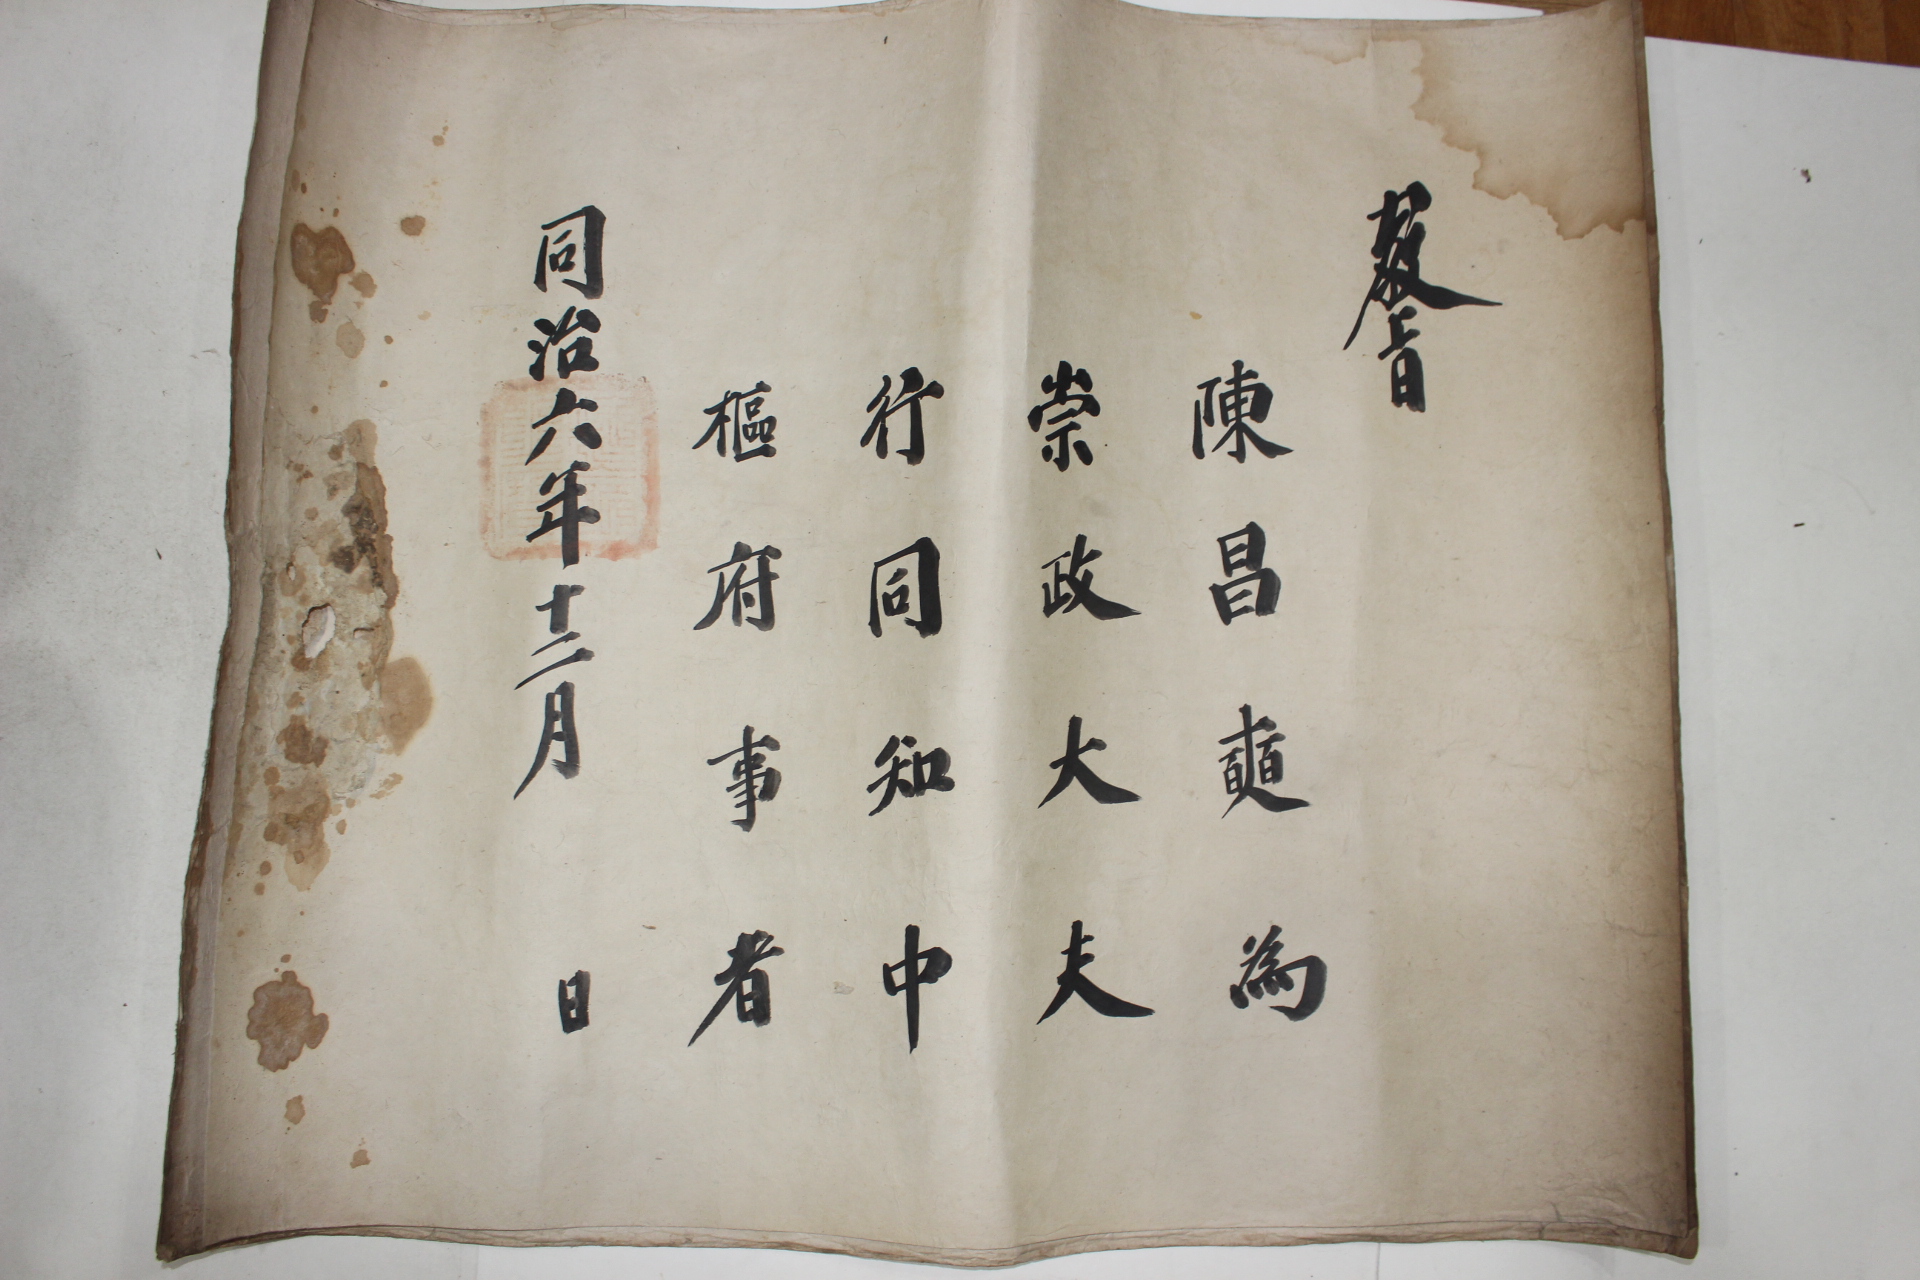 敎旨
陳昌奭為
崇政大夫
行同知中
樞府事者
同治六年十二月 日